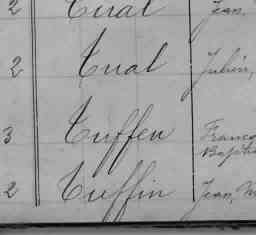 2 Tual Jean,
2 Tual Julien,
3 Tuffen Franço
Baptis
2 Tuffin Jean, M